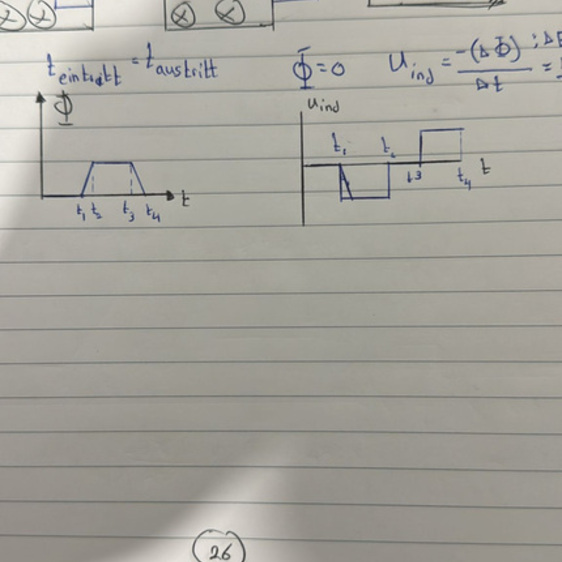 t eintritt = t austritt Φ = 0 U ind = -(ΔΦ) / Δt =
Φ
u ind
t₁ t₂ t₃ t₄ t
t₁ t₂ t3 t₄ t
26